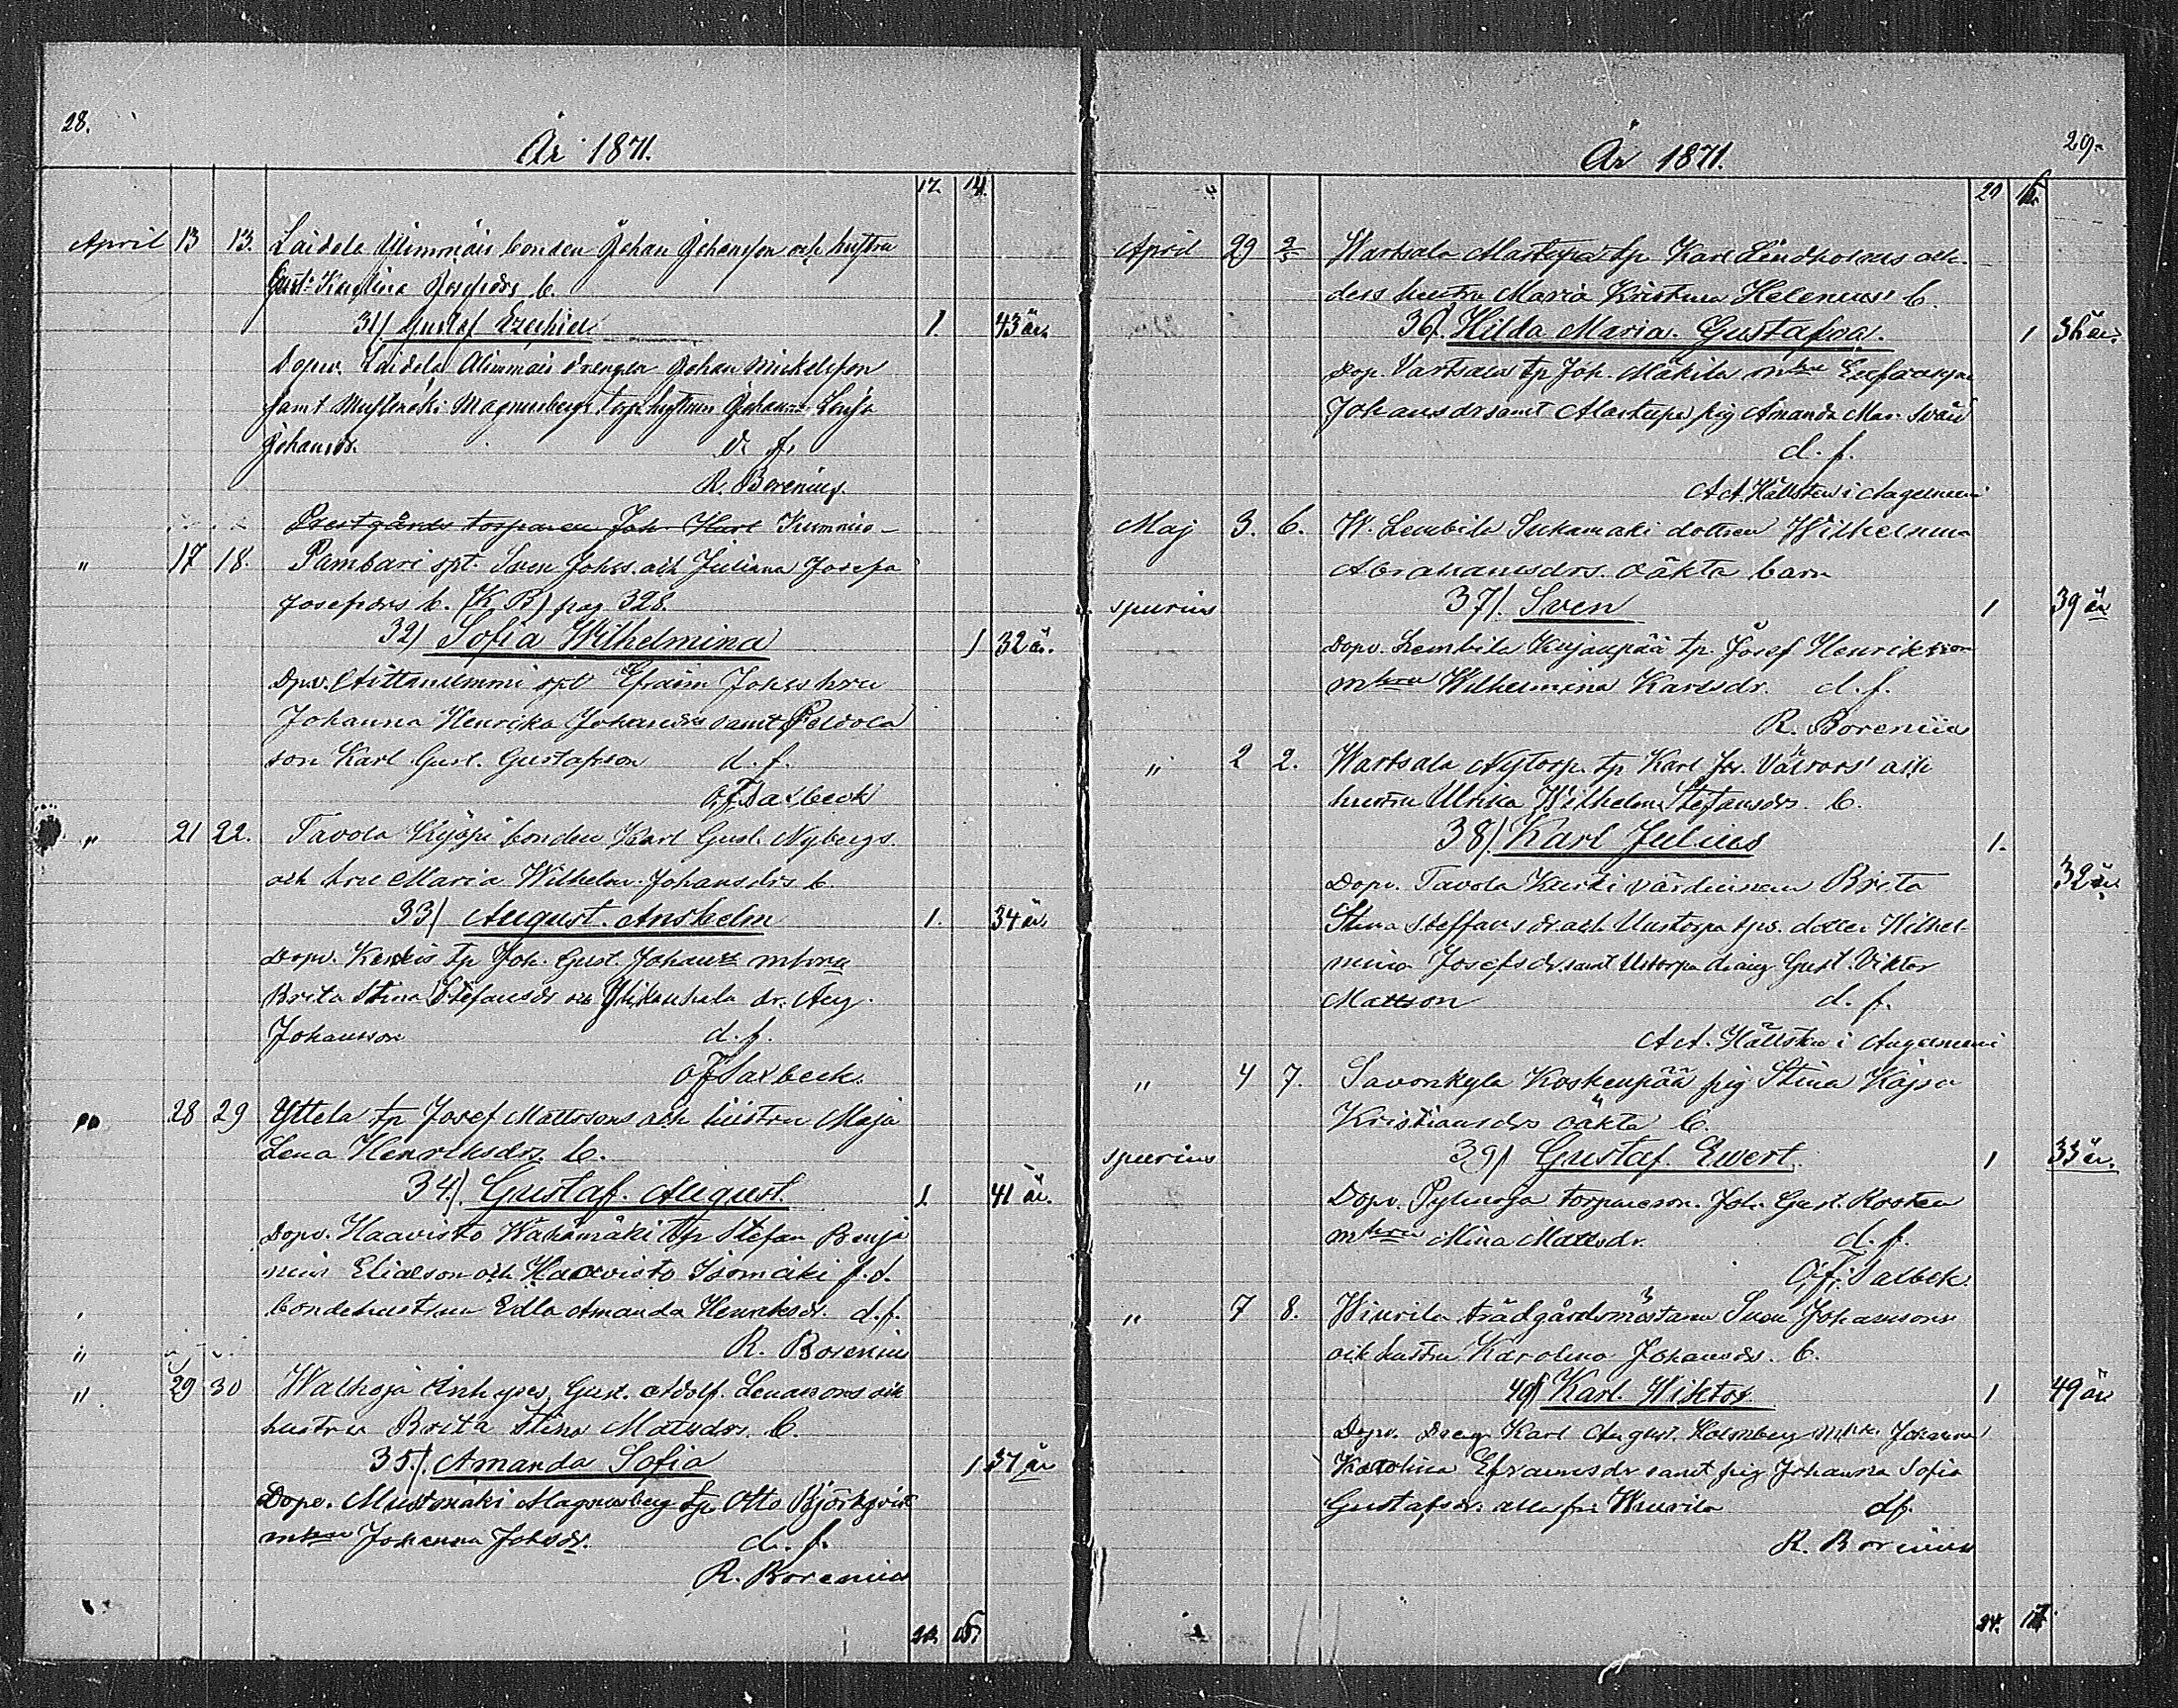 28.
År 1871.
17. 14.
April 13 13. Laidela Alimmäis bonden Johan Johansson och hustru
Gust: Karolina Josefsdrs b.
31) Gustaf Ezechiel 1. 43 år.
Dopv. Laidela Alimmäis drengen Johan Mickelsson
samt Mustmäki Magnusbergs torp.hustrun Johanna Lovisa
Johansdr. d. f.
R. Borenius.
Prestgårds torparen Joh. Karl Kummis-
" 17 18. Pambari spt. Sven Johss. och Juliana Josefa
Josefsdrs b. (K.B.) pag 328.
32) Sofia Wilhelmina 1 32 år.
Dpv. spt Efraim Johss hru
Johanna Henrika Johansdr samt Peldola
son Karl Gust. Gustafsson d. f.
O.F. Salbeck
" 21 22. Tavola Kyöpi bonden Karl Gust. Nybergs
och hru Maria Wilhelm. Johansdrs b.
33) August. Anshelm 1. 34 år.
Dopv. tp Joh. Gust. Johanss mhru
Brita Stina Stefansdr och dr. Aug.
Johansson d. f.
O F Salbeck.
" 28 29 Yttela tp Josef Mattssons och hustru Maja
Lena Henriksdrs. b.
34). Gustaf. August. 1 41 år.
Dopv. Haavisto Kahamäki tp Stefan Benja
min Eliasson och Haavisto Isomäki f.d.
bondehustrun Edla Amanda Henriksdr. d.f.
"
R. Borenius
" 29 30 Walhoja Inhyses Gust. Adolf. Lenassons och
hustru Brita Stina Matsdrs. b.
35). Amanda Sofia 1 37 år
Dopv. Mustmäki Magnusberg tp. Otto Björkqvist
mhru Johanna Johsdr. d. f.
R. Borenius
20. 15.
29.
År 1871.
20 15.
April 29 2/5 Wartsala tp. Karl Lindholms och
dess hustru Maria Kristina Helenius' b.
36). Hilda Maria. Gustafva. 1 36 år.
Dop. Vartsala tp Joh. Mäkilä mhru Eufrosyna
Johansdr samt pig Amanda Mar. Svärd
d. f.
A A. Hällsten i Angelniemi
Maj 3. 6. W. Lembila dottren Wilhelmina
Abrahamsdrs. oäkta barn
spurius 37). Sven 1 39 år
Dopv. Lembila Kujanpää tp. Josef Henriksson
mhru Wilhelmina Karlsdr. d. f.
R. Borenius
" 2 2. Wartsala Nytorp. tp Karl Joh. och
hustru Ulrika Wilhelm. Stefansdrs. b.
38). Karl Julius 1.
32 år
Dopv. Tavola Kurki värdinnan Brita
Stina Steffansdr och Uustorpa dotter Wilhel-
mina Josefsdr. samt Ustorpa dräng Gust. Viktor
Mattson d. f.
A A. Hällsten i Angelniemi
" 4 7. Savonkylä Koskenpää pig Stina Kajsa
Kristiansdrs oäkta b.
spurius 39) Gustaf. Ewert. 1 33 år.
Dopv. torpareson. Joh. Gust. Rosten
mhru Mina Mattsdr. d. f.
O.F. Salbeck.
" 7 8. Wiurila trädgårdsmästaren Sven Johanssons
och hustru Karolina Johansdrs. b.
40) Karl. Wiktor. 1 49 år
Dopv. Dreng Karl August. Holmberg mhru. Johanna
Karolina Efraimsdr samt pig Johanna Sofia
Gustafsdr. alla fr. Wiurila df.
R. Borenius
24. 17.